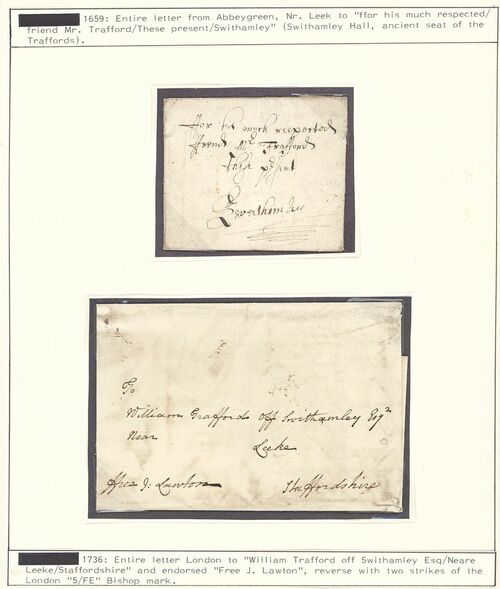 1659: Entire letter from Abbeygreen, Nr. Leek to "ffor his much respected/
friend Mr. Trafford/These present/Swithamley" (Swithamley Hall, ancient seat of the
Traffords).
ffor his much respected
ffrend Mr Trafford
these psent
Swethamley
To
William Trafford Off Swithamley Esqr
Near
Leeke
ffree J: Lawton
Staffordshire
1736: Entire letter London to "William Trafford off Swithamley Esq/Neare
Leeke/Staffordshire" and endorsed "Free J. Lawton", reverse with two strikes of the
London "5/FE" Bishop mark.